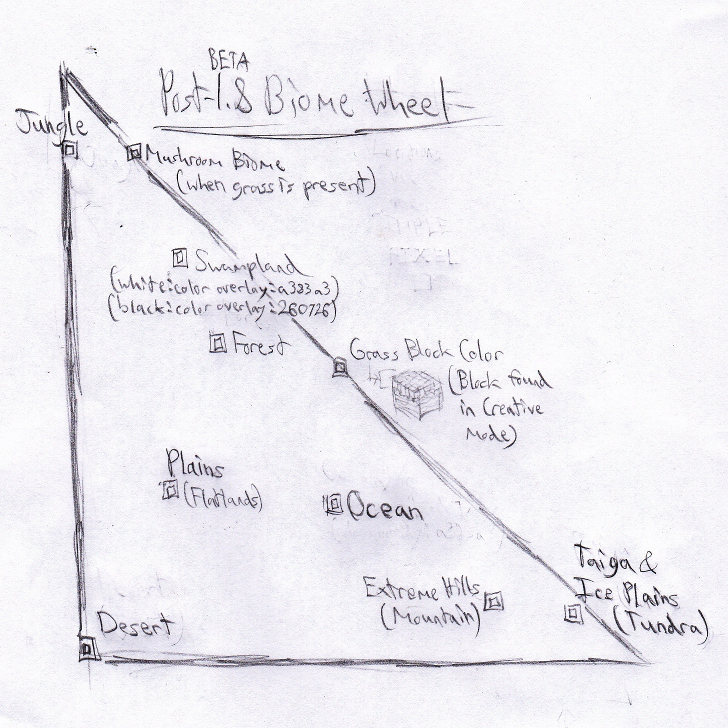 BETA
Post-1.8 Biome Wheel
Jungle
Mushroom Biome
(when grass is present)
Swampland
(white:color overlay:a383a3)
(black:color overlay:260726)
Forest
Grass Block Color
(Block found
in Creative
Mode)
Plains
(Flatlands)
Ocean
Taiga &
Ice Plains
(Tundra)
Extreme Hills
(Mountain)
Desert